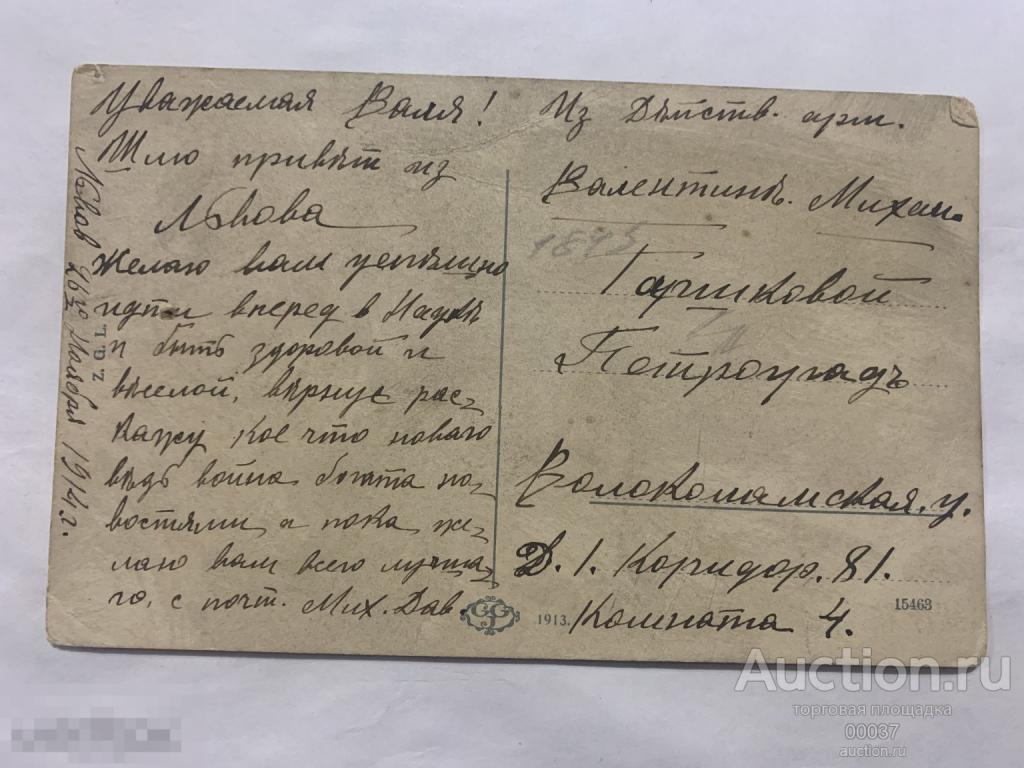 Уважаемая Валя!
Шлю привѣт из
Львова
Желаю вам успѣшно
идти вперед в Наукѣ
и быть здоровой и
веселой, вернус рас-
кажу кое что новаго
вѣдь война богата но-
востями, а пока же-
лаю вам всего лучша-
го, с почт. Мих. Дав.
Львов 26го Ноября 1914 г.
Z. G. L.
Из Дѣйств. арм.
Валентинѣ. Михай.
1543
Гаришковой
Петроградъ
Волоколамская. у.
Д. 1. Коридор. 81.
Комната 4.
1913.
15463
Auction.ru
торговая площадка
00037
auction.ru